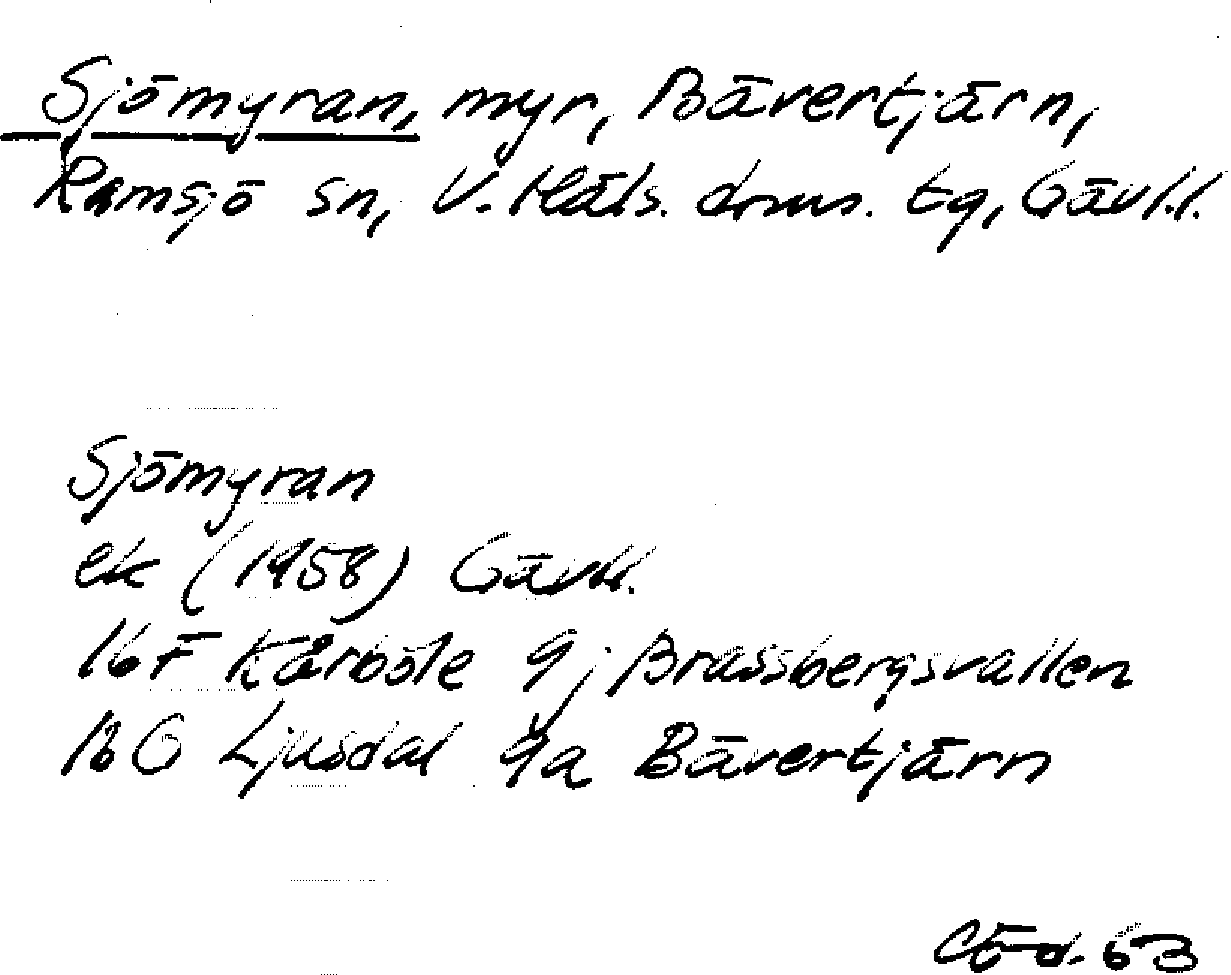 Sjömyran, myr, Bävertjärn,
Ramsjö sn, V. Häls. doms. tg, Gävl.l.
Sjömyran
ek (1958) Gävl.l.
16F Kårböle 9j Brassbergsvallen
16G Ljusdal 9a Bävertjärn
63